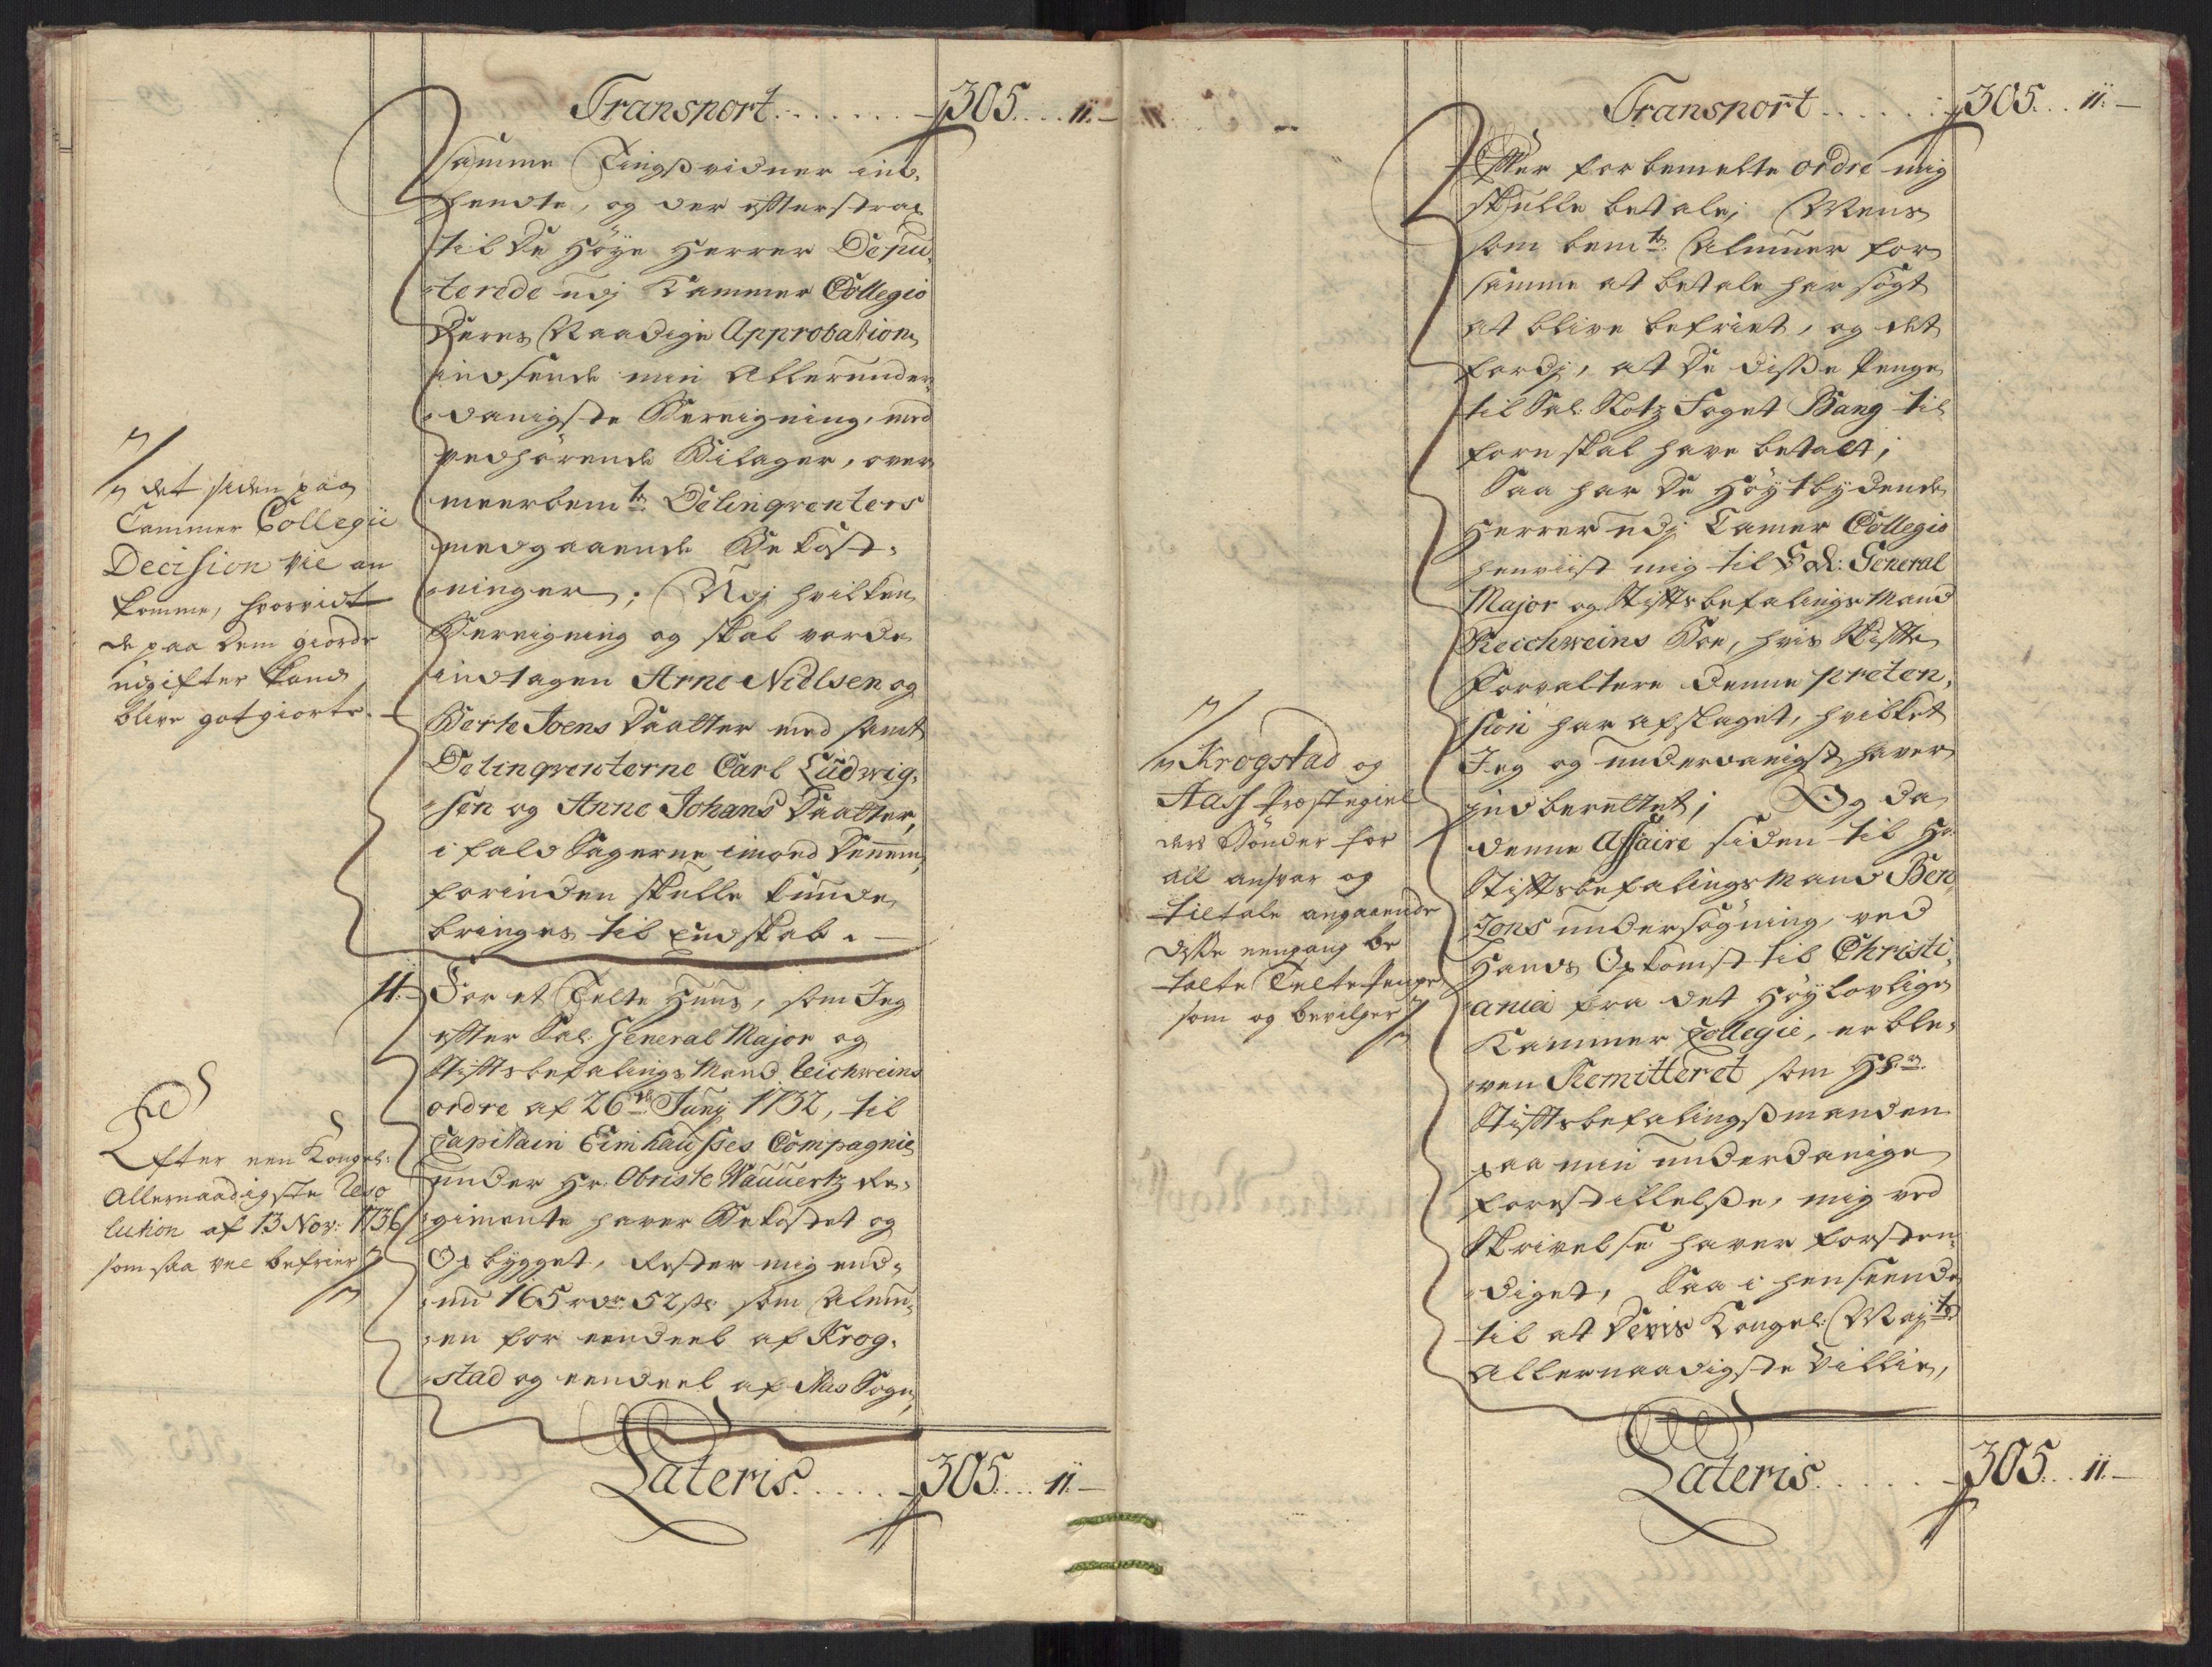 Transport . . . . . . . 305. . . . 11. —
samme Tingsvidner ind,
hendte, og der efterstrax
til De Høye Herrer Depu,
terede udj Kammer Collegio
Deres Naadige Approbation,
indsende min Allerunder,
danigste Beregning, med
vedhørende Bilager, over
meerbemte Delinqventers
medgaaende Bekost,
ninger; Udj hvilken
Beregning og skal vorde
indtagen Arne Nielsen og
Berte Joens Daatter med samt
Delinqventerne Carl Ludwig,
sen og Anne Johans Daatter,
i fald Sagerne imod Dennem,
forinden skulle kunde
bringes til Endskab. —
det siden paa
Cammer Collegii
Decision vil an
komme, hvorvidt
de paa dem giorde
udgifter kand
blive gotgiorte. —
11. For et Telte Huus, som Jeg
efter Sal: General Major og
Stiftsbefalings Mand Reichweins
ordre af 26de Junij 1732, til
Capitain Eimhausses Compagnie
under Hr: Obriste Wauuertz Re,
gimente haver Bekostet og
Opbygget, Rester mig end,
nu 165 rdr 52 s som Almu,
en for eendeel af Krog,
stad og eendeel af Aas Sogn,
Efter een Kongel:
Allernaadigste Reso
lution af 13 Nov: 1736
som saa vel befrier
Lateris. . . . . . 305. . . . 11. —
Transport . . . . . . 305. . . 11. —
Efter forbemelte ordre mig
skulle betale; Mens
som bemte Almuer for
samme at betale har søgt
at blive befriet, og det
fordj, at De disse Penge
til Sal: Foget Bang til
forn skal have betalt;
Saa har De Høytbydende
Herrer udj Camer Collegio
henviist mig til Sal: General
Major og Stiftsbefalings Mand
Reichweins Boe, hvis Skifte
Forvaltere denne preten,
sion har afslaget, hvilket
Jeg og underdanigst haver
indberettet; Og da
denne Affaire siden til Hr:
Stiftsbefalings Mand Ben,
Zons undersøgning, ved
Hands Opkomst til Christi,
ania fra det Høylovlige
Kammer Collegie, er ble,
ven Remitteret som Hr:
Stiftsbefalingsmanden
paa min underdanige
forestillelse, mig ved
Skrivelse haver forsten,
diget, Saa i henseende
til at Deris Kongel: Mayts
Allernaadigste Villie,
Krogstad og
Aass Præstegiel
ders Bønder for
all ansvar og
tiltale angaaende
disse eengang be
talte Telte Penge
som og bevilger
Lateris. . . . . . 305. . . 11. —